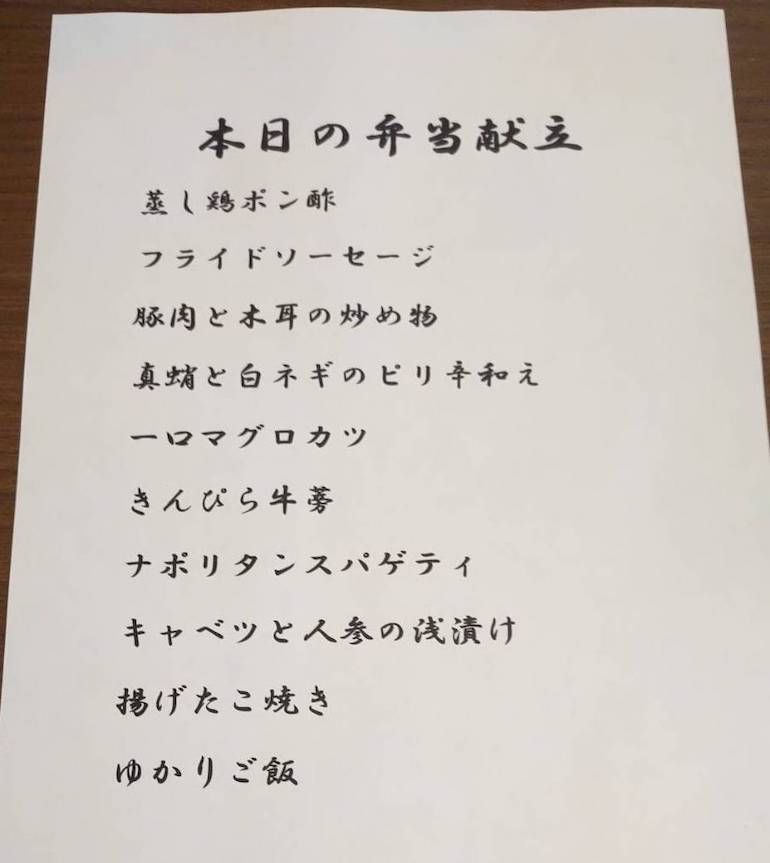 本日の弁当献立
蒸し鶏ポン酢
フライドソーセージ
豚肉と木耳の炒め物
真蛸と白ネギのピリ辛和え
一口マグロカツ
きんぴら牛蒡
ナポリタンスパゲティ
キャベツと人参の浅漬け
揚げたこ焼き
ゆかりご飯